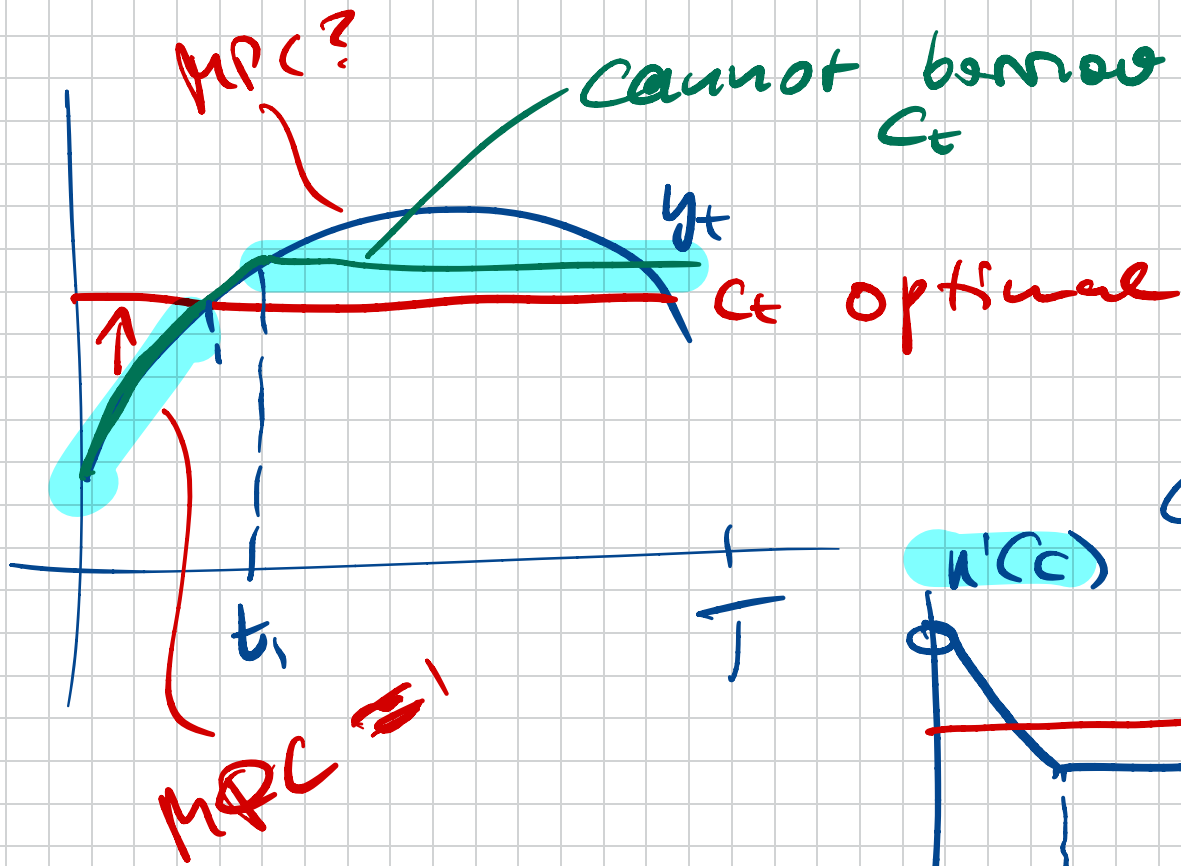 MPC?
cannot borrow
Ct
yt
Ct optimal
u'(c)
t1
T
MPC = 1